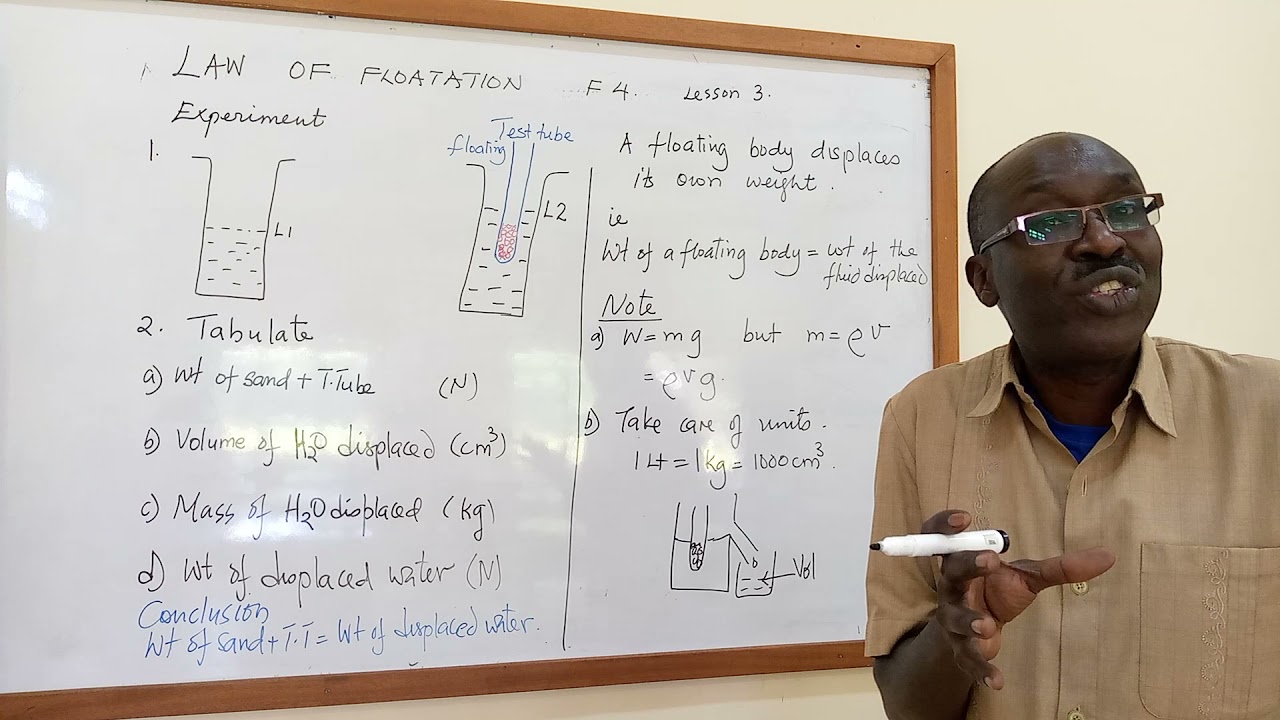 LAW OF FLOATATION F4. Lesson 3.
Experiment
1.
L1
Test tube
floating
L2
2. Tabulate
a) Wt of sand + T.Tube (N)
b) Volume of H2O displaced (cm³)
c) Mass of H2O displaced (kg)
d) Wt of displaced water (N)
Conclusion
Wt of sand + T.T = Wt of displaced water.
A floating body displaces
its own weight.
ie
Wt of a floating body = wt of the
fluid displaced
Note
a) W = mg but m = ρv
= ρvg.
b) Take care of units.
1Lt = 1kg = 1000cm³.
Vol